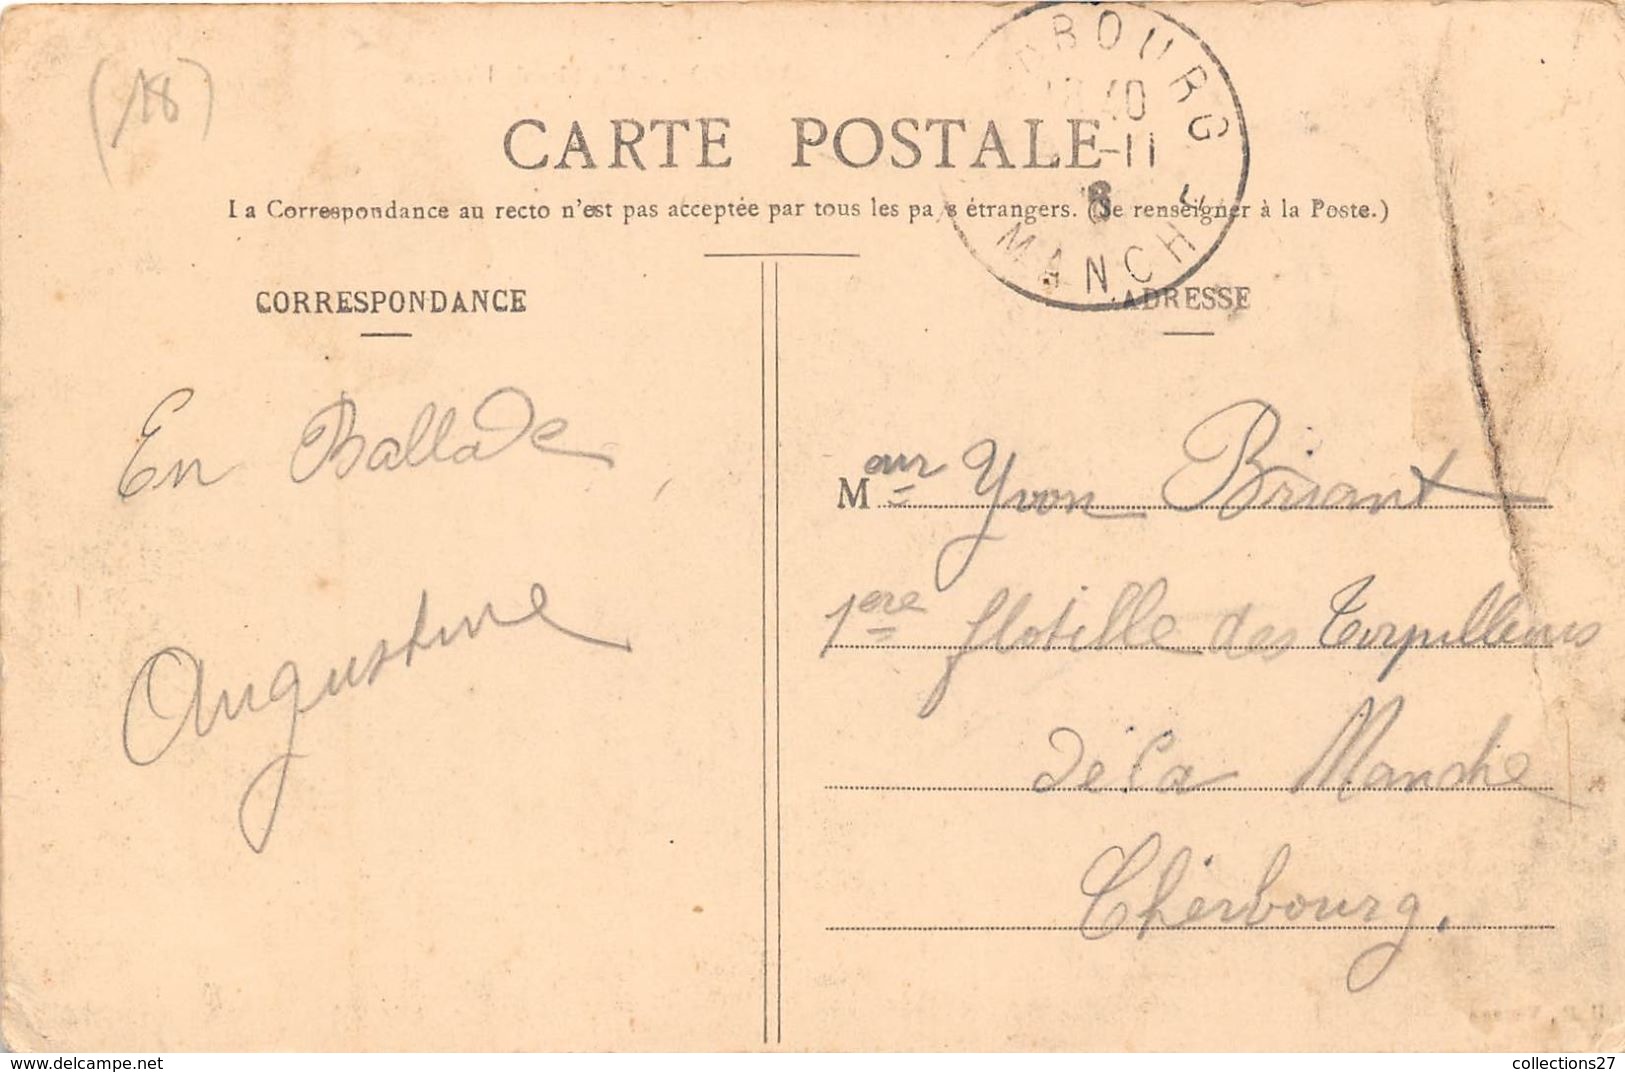 (18)
BOURG
10
-11
8
MANCHE
CARTE POSTALE
La Correspondance au recto n'est pas acceptée par tous les pays étrangers. (Se renseigner à la Poste.)
CORRESPONDANCE
En Ballade
Augustine
ADRESSE
Mʳ Yvon Briant
1ere flotille des Torpilleurs
de la Manche
Cherbourg.
www.delcampe.net
collections27